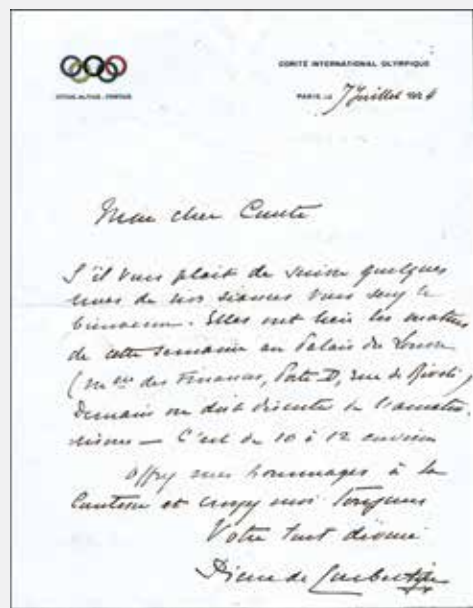 COMITÉ INTERNATIONAL OLYMPIQUE
CITIUS - ALTIUS - FORTIUS
PARIS, LE 7 Juillet 1924
Mon cher Comte
S'il vous plait de suivre quelques
unes de nos séances vous serez le
bienvenu. Elles ont lieu les matins
de cette semaine au Palais du Louvre
(Mère des Finances, Porte D, rue de Rivoli)
Demain on doit discuter de l'amateu-
risme — C'est de 10 à 12 environ
Offrez mes hommages à la
Comtesse et croyez moi toujours
Votre tout dévoué
Pierre de Coubertin